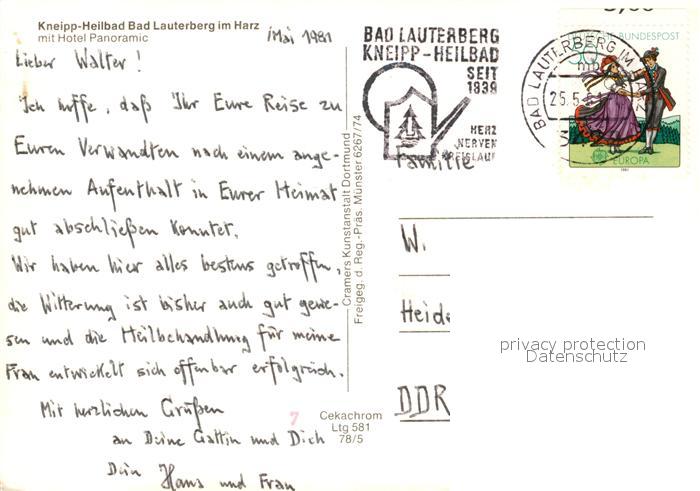 Kneipp-Heilbad Bad Lauterberg im Harz
mit Hotel Panoramic
Mai 1981
Lieber Walter!
Ich hoffe, daß Ihr Eure Reise zu
Euren Verwandten nach einem ange-
nehmen Aufenthalt in Eurer Heimat
gut abschließen konntet.
Wir haben hier alles bestens getroffen,
die Witterung ist bisher auch gut gewe-
sen und die Heilbehandlung für meine
Frau entwickelt sich offenbar erfolgreich.
Mit herzlichen Grüßen
an Deine Gattin und Dich
Dein Hans und Frau
Cramers Kunstanstalt Dortmund
Freigeg. d. Reg.-Präs. Münster 6267/74
7
Cekachrom
Ltg 581
78/5
BAD LAUTERBERG
KNEIPP-HEILBAD
SEIT
1839
HERZ
NERVEN
KREISLAUF
BAD LAUTERBERG IM HARZ
mb
25.5.
DEUTSCHE BUNDESPOST
50
EUROPA
1981
Familie
W.
Heide
DDR
privacy protection
Datenschutz